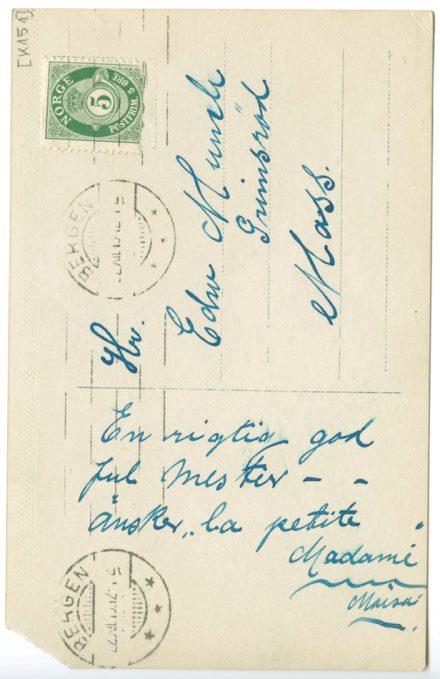 [K151]
NORGE
5
POSTFRIM. 5 ØRE
BERGEN
Hr.
Edw Munch
Grimsrød
Moss.
En rigtig god
jul Mester - -
ønsker "la petite
Madame"
Maisa
BERGEN